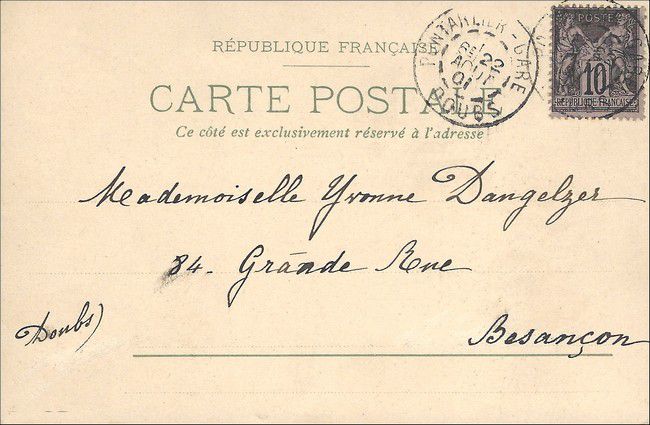 RÉPUBLIQUE FRANÇAISE
CARTE POSTALE
Ce côté est exclusivement réservé à l'adresse
PONTARLIER-GARE
25
AOUT
01
DOUBS
POSTE
10
RÉPUBLIQUE FRANÇAISE
Mademoiselle Yvonne Dangelzer
84. Grande Rue
Besançon
Doubs)